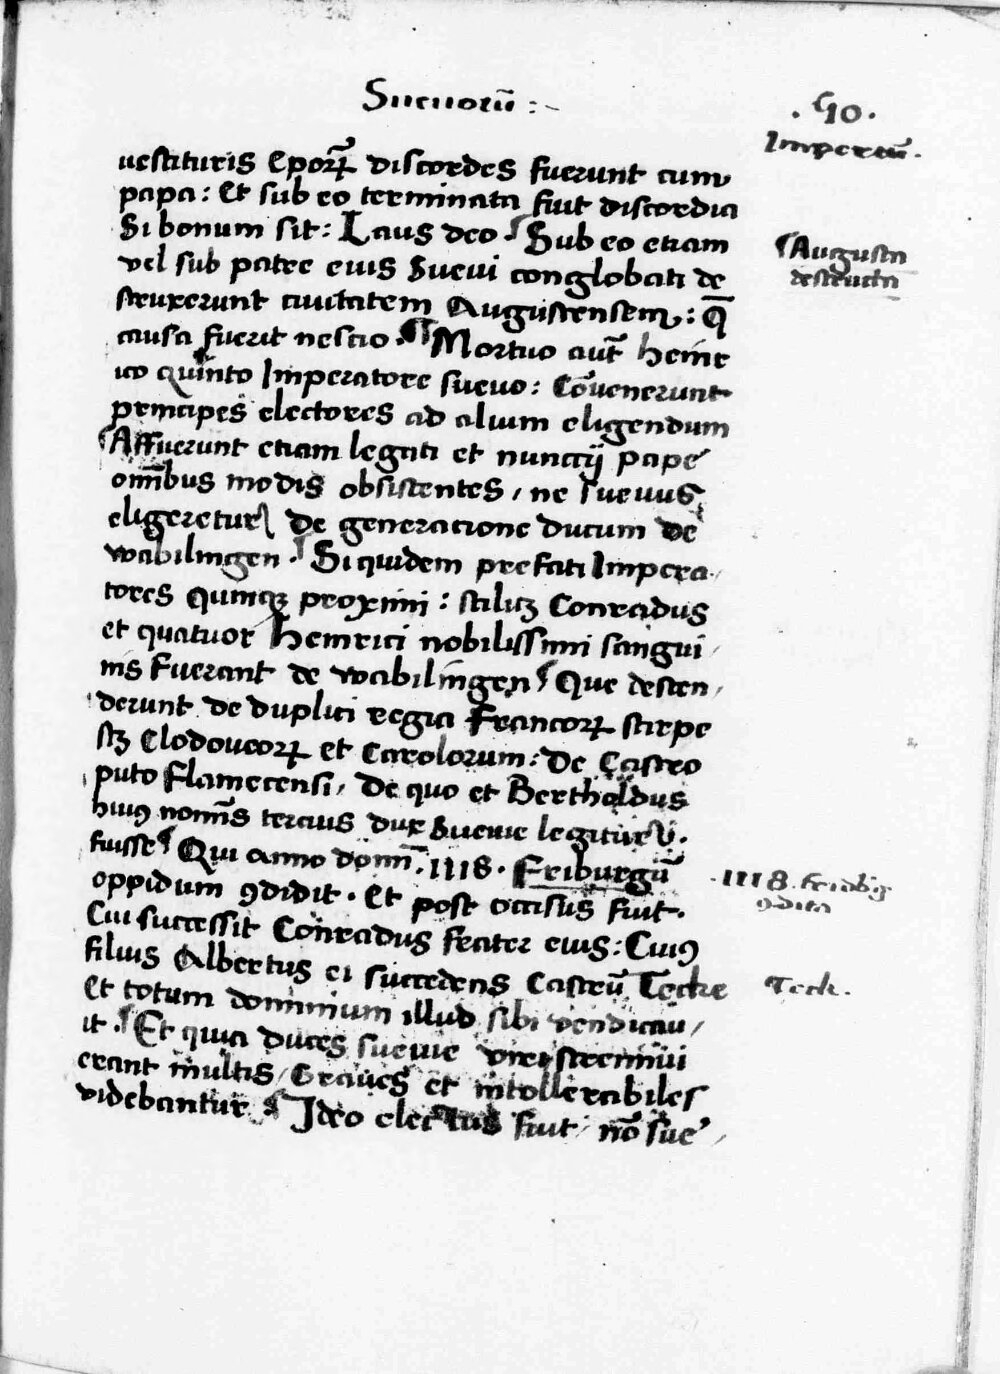 Sueuorū :~
. 90 .
Imperiū .
uestituris Eporꝝ discordes fuerunt cum
papa : Et sub eo terminata fuit discordia
Si bonum sit : Laus deo . ¶ Sub eo etiam
¶ Augusta
destructa
vel sub patre eius Sueui conglobati de
struxerunt ciuitatem Augustensem : Q̄
causa fuerit nescio . ¶ Mortuo aut̄ heinr
ico quinto Imperatore sueuo : Cōuenerunt
principes electores ad alium eligendum
¶ Affuerunt etiam legati et nunctij pape
om̄ibus modis obsistentes , ne sueuus
eligeretur De generacione ducum de
wabilingen . ¶ Siquidem prefati Impera
tores Quinqꝫ proximi : scilicꝫ Conradus
et quatuor Heinrici nobilissimi sangui
nis fuerant de wabilingen ¶ Que descen ,
derunt de duplici regia Francorꝝ stirpe
sꝫ Clodoueorꝝ et Carolorum : De Castro
puto Flamerensi , De quo et Bertholdus
huiꝰ nom̄is tercius dux Sueuie legitur
fuisse ¶ Qui anno domī . 1118 . Friburgū
. 1118 . friabꝰg
ꝯdita
oppidum ꝯdidit . Et post occisus fuit .
Cui successit Conradus frater eius : Cuiꝰ
filius Albertus ei succedens Castrū Tecke
Teck .
Et totum dominium illud sibi vendicau /
it . ¶ Et quia duces sueuie viri strennui
erant multis / Graues et intollerabiles
videbantur . ¶ Ideo electus fuit / nō sue ,